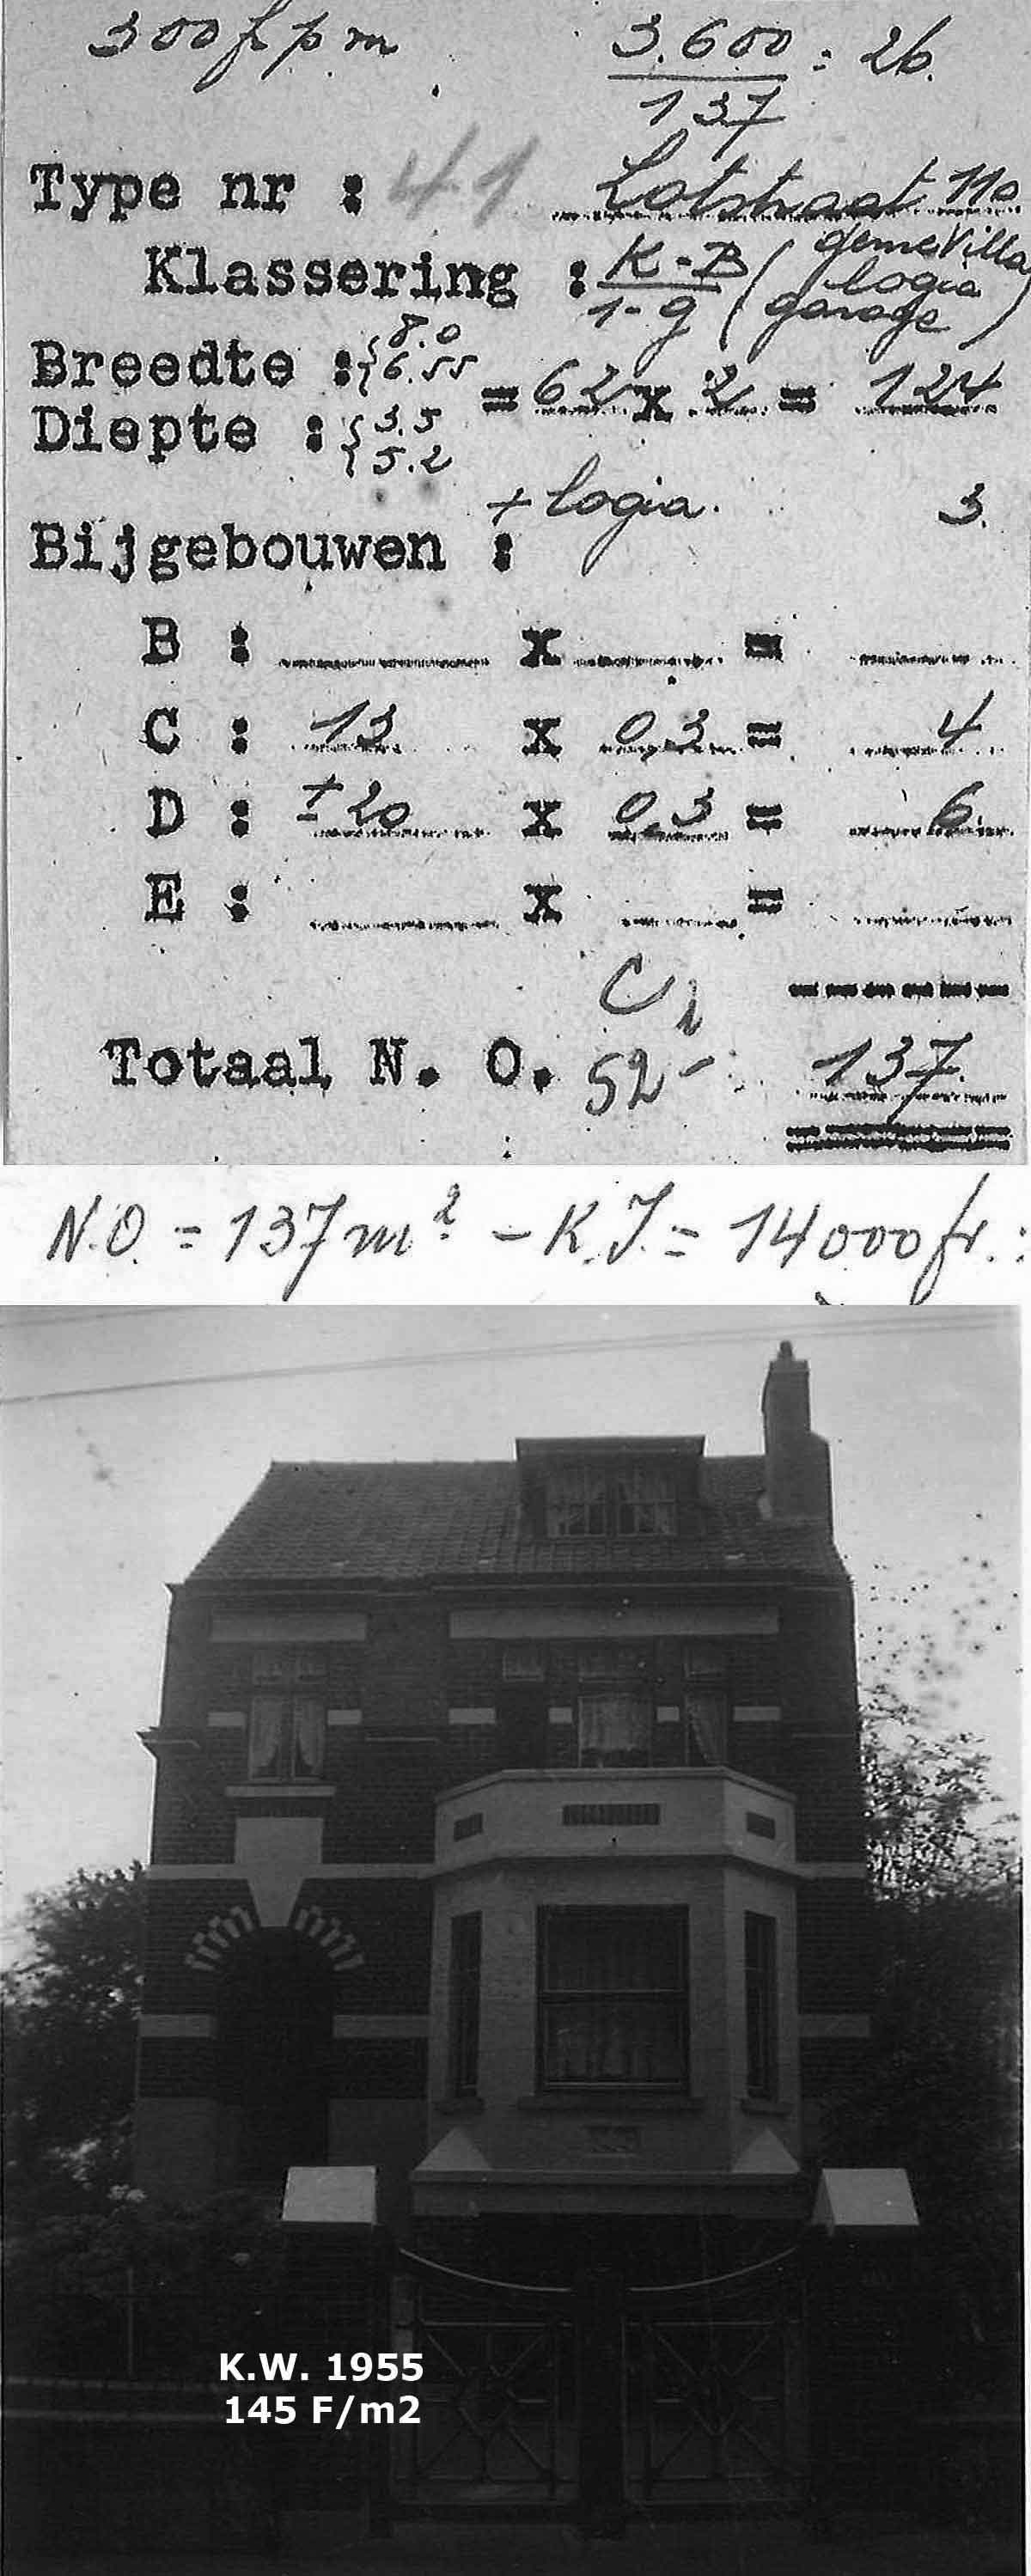 300 f p m 3.600 : 26.
137
Type nr : 41 Lotstraat 110
Klassering : K-B ( demeVilla
1-9 logia
garage )
Breedte : { 8.0
{ 6.55 = 62 x 2 = 124
Diepte : { 3.5
{ 5.2
+ logia. 3.
Bijgebouwen :
B : x =
C : 13 x 0,3 = 4
D : ± 20 x 0,3 = 6.
E : x =
C
Totaal N. O. 52- 137.
N.O. = 137 m² - K.I. = 14000 fr. :
K.W. 1955
145 F/m2